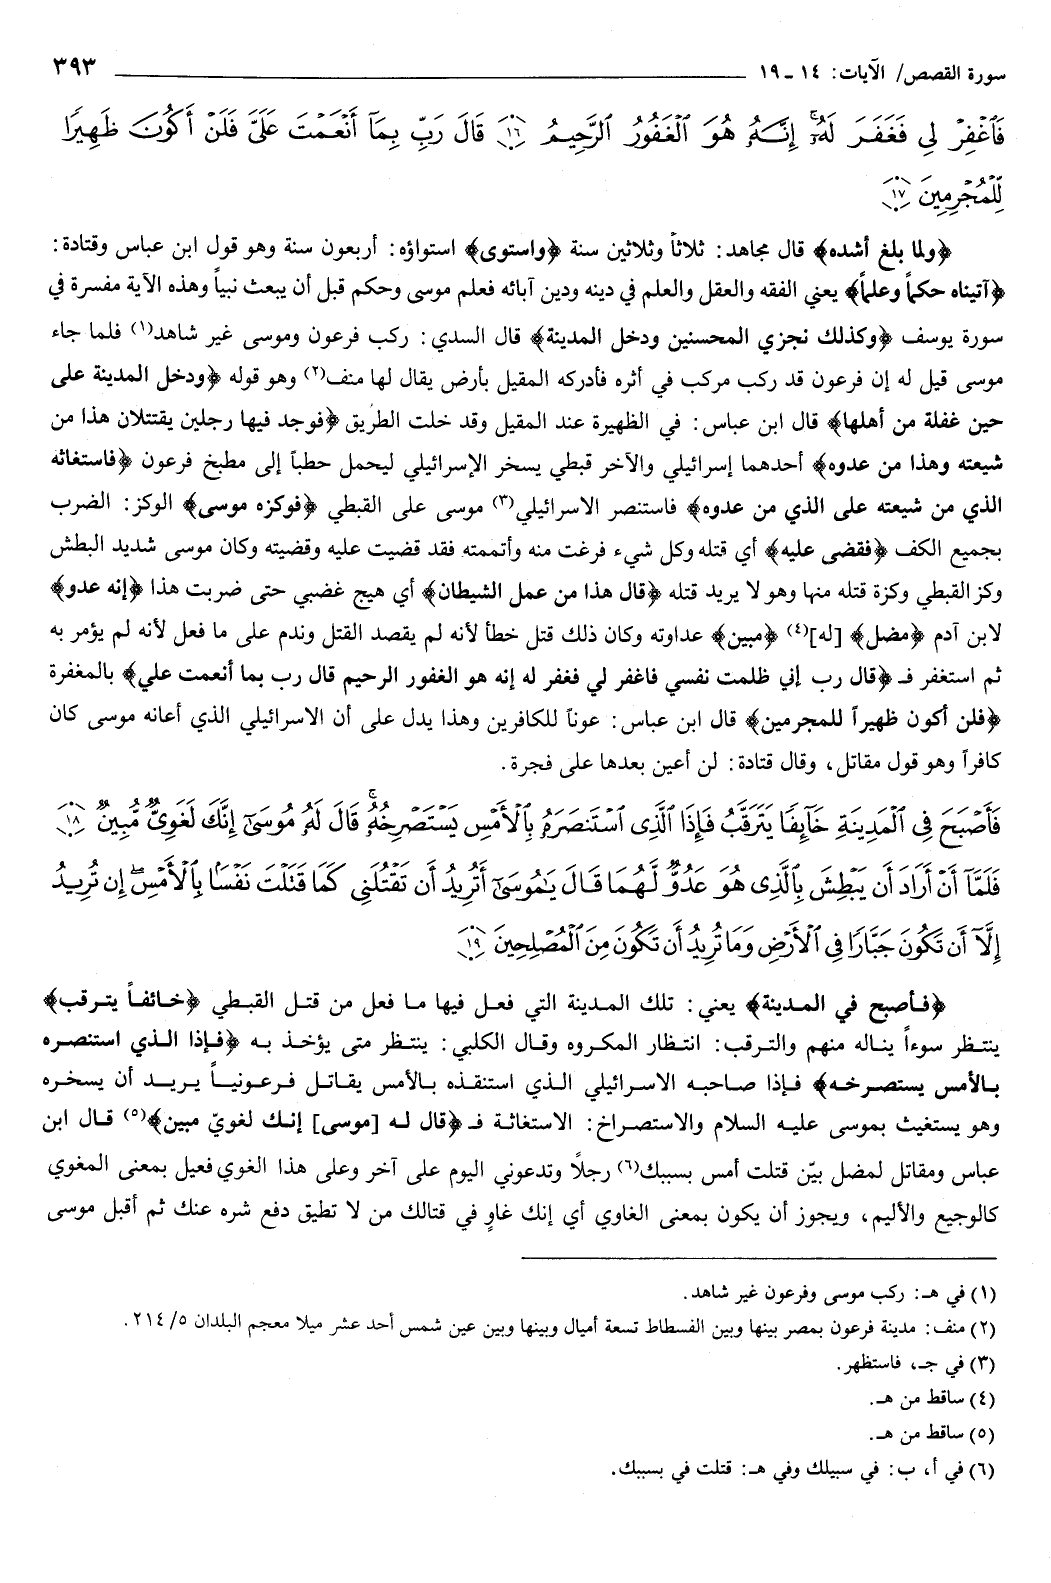 سورة القصص/ الآيات: ١٤ ـ ١٩ ٣٩٣
فَٱغۡفِرۡ لِي فَغَفَرَ لَهُۥٓۚ إِنَّهُۥ هُوَ ٱلۡغَفُورُ ٱلرَّحِيمُ ١٦ قَالَ رَبِّ بِمَآ أَنۡعَمۡتَ عَلَيَّ فَلَنۡ أَكُونَ ظَهِيرٗا
لِّلۡمُجۡرِمِينَ ١٧
﴿ولما بلغ أشده﴾ قال مجاهد: ثلاثاً وثلاثين سنة ﴿واستوى﴾ استواؤه: أربعون سنة وهو قول ابن عباس وقتادة:
﴿آتيناه حكماً وعلماً﴾ يعني الفقه والعقل والعلم في دينه ودين آبائه فعلم موسى وحكم قبل أن يبعث نبياً وهذه الآية مفسرة في
سورة يوسف ﴿وكذلك نجزي المحسنين ودخل المدينة﴾ قال السدي: ركب فرعون وموسى غير شاهد(١) فلما جاء
موسى قيل له إن فرعون قد ركب مركب في أثره فأدركه المقيل بأرض يقال لها منف(٢) وهو قوله ﴿ودخل المدينة على
حين غفلة من أهلها﴾ قال ابن عباس: في الظهيرة عند المقيل وقد خلت الطريق ﴿فوجد فيها رجلين يقتتلان هذا من
شيعته وهذا من عدوه﴾ أحدهما إسرائيلي والآخر قبطي يسخر الإسرائيلي ليحمل حطباً إلى مطبخ فرعون ﴿فاستغاثه
الذي من شيعته على الذي من عدوه﴾ فاستنصر الاسرائيلي(٣) موسى على القبطي ﴿فوكزه موسى﴾ الوكز: الضرب
بجميع الكف ﴿فقضى عليه﴾ أي قتله وكل شيء فرغت منه وأتممته فقد قضيت عليه وقضيته وكان موسى شديد البطش
وكز القبطي وكزة قتله منها وهو لا يريد قتله ﴿قال هذا من عمل الشيطان﴾ أي هيج غضبي حتى ضربت هذا ﴿إنه عدو﴾
لابن آدم ﴿مضل﴾ [له](٤) ﴿مبين﴾ عداوته وكان ذلك قتل خطأ لأنه لم يقصد القتل وندم على ما فعل لأنه لم يؤمر به
ثم استغفر فـ ﴿قال رب إني ظلمت نفسي فاغفر لي فغفر له إنه هو الغفور الرحيم قال رب بما أنعمت علي﴾ بالمغفرة
﴿فلن أكون ظهيراً للمجرمين﴾ قال ابن عباس: عوناً للكافرين وهذا يدل على أن الاسرائيلي الذي أعانه موسى كان
كافراً وهو قول مقاتل، وقال قتادة: لن أعين بعدها على فجرة.
فَأَصۡبَحَ فِي ٱلۡمَدِينَةِ خَآئِفٗا يَتَرَقَّبُ فَإِذَا ٱلَّذِي ٱسۡتَنصَرَهُۥ بِٱلۡأَمۡسِ يَسۡتَصۡرِخُهُۥۚ قَالَ لَهُۥ مُوسَىٰٓ إِنَّكَ لَغَوِيّٞ مُّبِينٞ ١٨
فَلَمَّآ أَنۡ أَرَادَ أَن يَبۡطِشَ بِٱلَّذِي هُوَ عَدُوّٞ لَّهُمَا قَالَ يَٰمُوسَىٰٓ أَتُرِيدُ أَن تَقۡتُلَنِي كَمَا قَتَلۡتَ نَفۡسَۢا بِٱلۡأَمۡسِۖ إِن تُرِيدُ
إِلَّآ أَن تَكُونَ جَبَّارٗا فِي ٱلۡأَرۡضِ وَمَا تُرِيدُ أَن تَكُونَ مِنَ ٱلۡمُصۡلِحِينَ ١٩
﴿فأصبح في المدينة﴾ يعني: تلك المدينة التي فعل فيها ما فعل من قتل القبطي ﴿خائفاً يترقب﴾
ينتظر سوءاً يناله منهم والترقب: انتظار المكروه وقال الكلبي: ينتظر متى يؤخذ به ﴿فإذا الذي استنصره
بالأمس يستصرخه﴾ فإذا صاحبه الاسرائيلي الذي استنقذه بالأمس يقاتل فرعونياً يريد أن يسخره
وهو يستغيث بموسى عليه السلام والاستصراخ: الاستغاثة فـ ﴿قال له [موسى] إنك لغويّ مبين﴾(٥) قال ابن
عباس ومقاتل لمضل بيّن قتلت أمس بسببك(٦) رجلاً وتدعوني اليوم على آخر وعلى هذا الغوي فعيل بمعنى المغوي
كالوجيع والأليم، ويجوز أن يكون بمعنى الغاوي أي إنك غاوٍ في قتالك من لا تطيق دفع شره عنك ثم أقبل موسى
(١) في هـ: ركب موسى وفرعون غير شاهد.
(٢) منف: مدينة فرعون بمصر بينها وبين الفسطاط تسعة أميال وبينها وبين عين شمس أحد عشر ميلا معجم البلدان ٥/ ٢١٤.
(٣) في جـ، فاستظهر.
(٤) ساقط من هـ.
(٥) ساقط من هـ.
(٦) في أ، ب: في سبيلك وفي هـ: قتلت في بسببك.